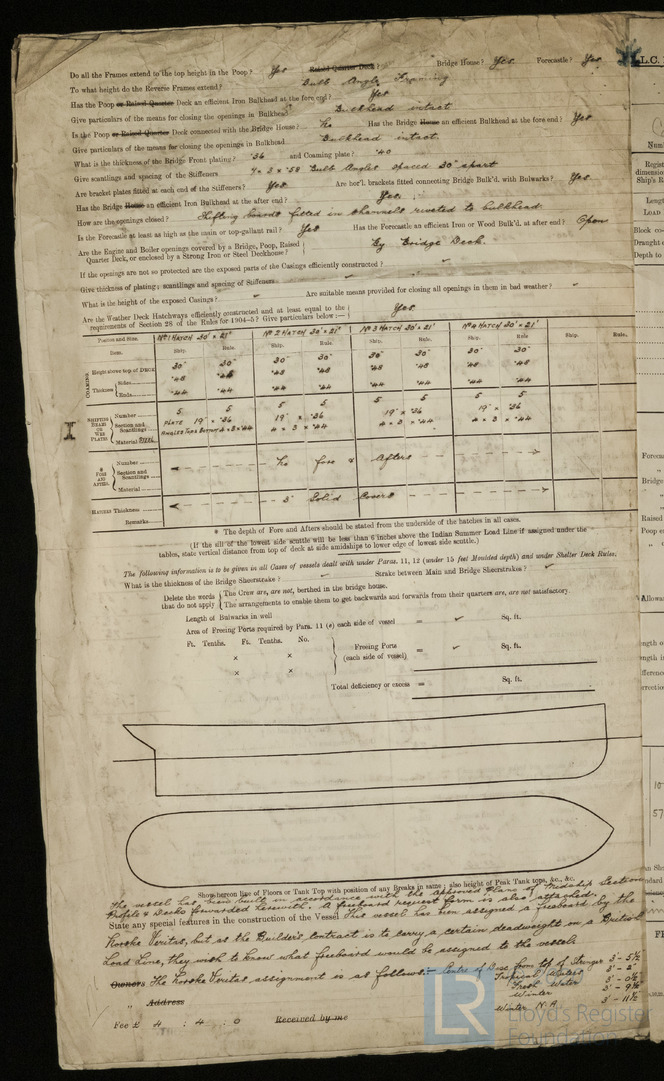 Do all the Frames extend to the top height in the Poop? Yes Raised Quarter Deck? Bridge House? Yes Forecastle? Yes
To what height do the Reverse Frames extend? Bulb Angle Framing
Has the Poop or Raised Quarter Deck an efficient Iron Bulkhead at the fore end? Yes
Give particulars of the means for closing the openings in Bulkhead? Bulkhead intact
Is the Poop or Raised Quarter Deck connected with the Bridge House? No Has the Bridge House an efficient Bulkhead at the fore end? Yes
Give particulars of the means for closing the openings in Bulkhead Bulkhead intact.
What is the thickness of the Bridge Front plating? ·36 and Coaming plate? ·40
Give scantlings and spacing of the Stiffeners 7 × 3 × ·38 Bulb Angles spaced 30" apart
Are bracket plates fitted at each end of the Stiffeners? Yes Are hor'l. brackets fitted connecting Bridge Bulk'd. with Bulwarks? Yes
Has the Bridge House an efficient Iron Bulkhead at the after end? Yes.
How are the openings closed? Shifting boards fitted in channels riveted to bulkhead
Is the Forecastle at least as high as the main or top-gallant rail? Yes Has the Forecastle an efficient Iron or Wood Bulk'd. at after end? Open
Are the Engine and Boiler openings covered by a Bridge, Poop, Raised Quarter Deck, or enclosed by a Strong Iron or Steel Deckhouse? By Bridge Deck.
If the openings are not so protected are the exposed parts of the Casings efficiently constructed?
Give thickness of plating; scantlings and spacing of Stiffeners
What is the height of the exposed Casings? Are suitable means provided for closing all openings in them in bad weather?
Are the Weather Deck Hatchways efficiently constructed and at least equal to the requirements of Section 28 of the Rules for 1904-5? Give particulars below:— Yes
Position and Size. No 1 HATCH 30' × 21' No 2 HATCH 30' × 21' No 3 HATCH 30' × 21' No 4 HATCH 30' × 21'
Item. Ship. Rule. Ship. Rule. Ship. Rule. Ship. Rule. Ship. Rule.
COAMING Height above top of DECK 30" 30" 30" 30" 30" 30" 30" 30"
Thickness Sides ·48 ·48 ·48 ·48 ·48 ·48 ·48
Ends ·44 ·44 ·44 ·44 ·44 ·44 ·44 ·44
SHIFTING BEAMS OR WEB PLATES Number 5 5 5 5 5 5 5 5
Section and Scantlings PLATE 19" × ·36 19" × ·36 19" × ·36 19" × ·36
Material STEEL ANGLES TOP & BOTTOM 4 × 3 × ·44 4 × 3 × ·44 4 × 3 × ·44 4 × 3 × ·44
* FORE AND AFTERS. Number No fore & Afters
Section and Scantlings
Material
HATCHES Thickness 3" Solid Covers
Remarks
* The depth of Fore and Afters should be stated from the underside of the hatches in all cases.
(If the sill of the lowest side scuttle will be less than 6 inches above the Indian Summer Load Line if assigned under the
tables, state vertical distance from top of deck at side amidships to lower edge of lowest side scuttle.)
The following information is to be given in all Cases of vessels dealt with under Paras. 11, 12 (under 15 feet Moulded depth) and under Shelter Deck Rules.
What is the thickness of the Bridge Sheerstrake? Strake between Main and Bridge Sheerstrakes?
Delete the words that do not apply
The Crew are, are not, berthed in the bridge house.
The arrangements to enable them to get backwards and forwards from their quarters are, are not satisfactory.
Length of Bulwarks in well
Area of Freeing Ports required by Para. 11 (e) each side of vessel = Sq. ft.
Ft. Tenths. Ft. Tenths. No.
× ×
× ×
Freeing Ports (each side of vessel) = Sq. ft.
Total deficiency or excess = Sq. ft.
Show hereon line of Floors or Tank Top with position of any Breaks in same; also height of Peak Tank tops, &c., &c.
The vessel has been built in accordance with the approved Plans of Midship Section
Profile & Decks forwarded herewith. A freeboard request form is also attached.
State any special features in the construction of the Vessel This vessel has been assigned a freeboard by the
Norske Veritas, but as the Builder's Contract is to carry a certain deadweight on a British
Load Line, they wish to know what freeboard would be assigned to the vessel.
Owners The Norske Veritas assignment is as follows:- Centre of Disc from top of Stringer 3'- 5½
Tropical Waters 3'- 2"
Fresh Water 3'- 0½
Winter 3'- 9½
Winter N.A. 3'- 11½
" Address
Fee £ 4 : 4 : 0 Received by me
L.C.
LR Lloyd's Register Foundation